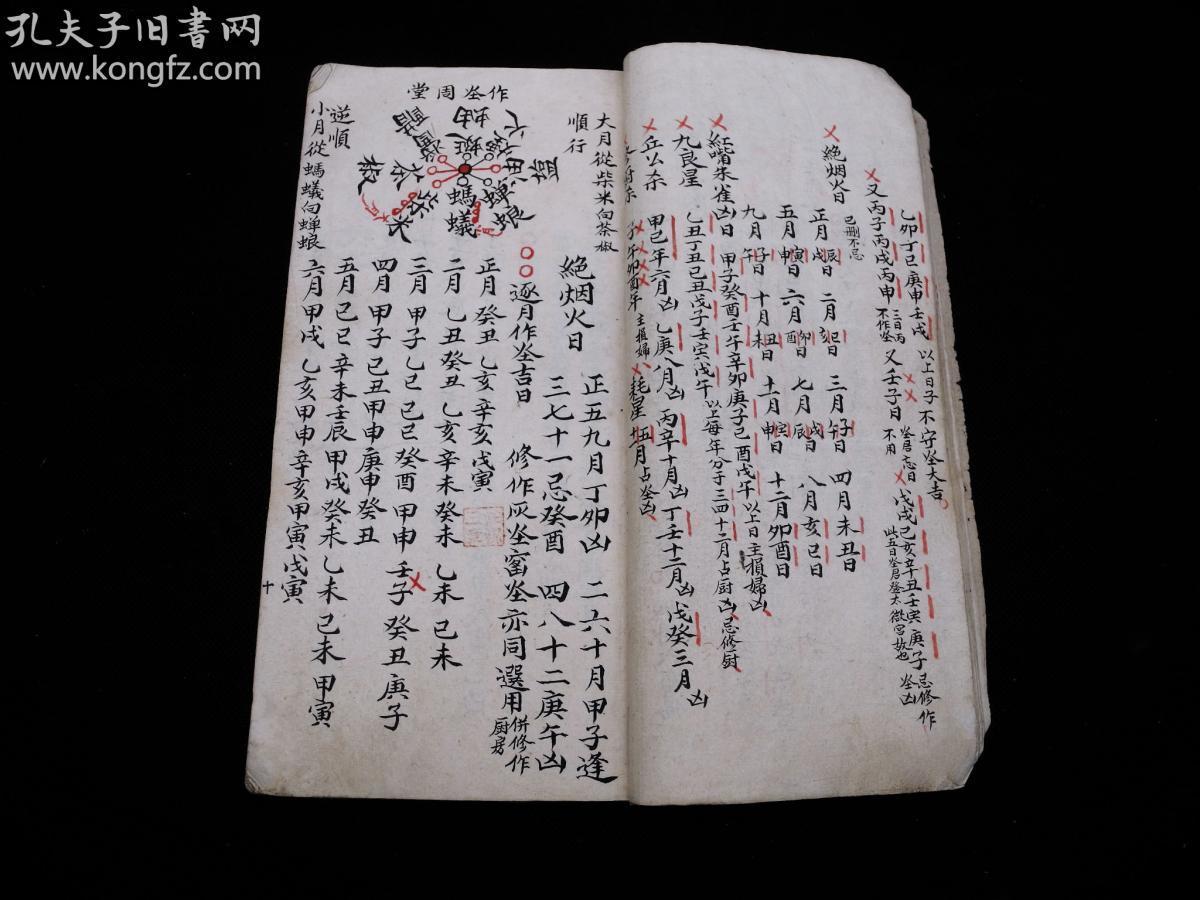 孔夫子旧书网
www.kongfz.com
乙卯丁巳庚申壬戌 以上日子不守灶大吉
又丙子丙戌丙申 三日丙不作灶 又壬子日 灶君忌日不用 戊戌己亥辛丑壬寅庚子忌修作灶凶
絕烟火日 己刪不忌
正月辰戌日 二月巳亥日 三月子午日 四月未丑日
五月寅申日 六月卯酉日 七月戌辰日 八月亥巳日
九月子午日 十月丑未日 十一月寅申日 十二卯酉日
紅嘴朱雀凶日 甲子癸酉壬午辛卯庚子己酉戊午 以上日主損婦凶
九良星 乙丑丁丑己丑戊子壬寅戊午 以上每年分于三四十二月占厨凶忌修厨
丘公杀 甲己年六月凶 乙庚八月凶 丙辛十月凶 丁壬十二月凶 戊癸三月凶
子午卯酉年 主損婦 耗星 五十一月占灶凶
作灶周堂
大月從柴米向茶椒順行
小月從螞蟻向蟬蜋逆順
螞蟻
蟬蜋
柴米
茶
椒
絕烟火日 正五九月丁卯凶 二六十月甲子逢
三七十一忌癸酉 四八十二庚午凶
逐月作灶吉日 修作灰灶窑灶亦同選用 併修作厨房
正月 癸丑 乙亥 辛亥 戊寅
二月 乙丑 癸丑 乙亥 辛未 癸未 乙未 己未
三月 甲子 乙巳 己巳 癸酉 甲申 壬子 癸丑 庚子
四月 甲子 己丑 甲申 庚申 癸丑
五月 己巳 辛未 壬辰 甲戌 癸未 乙未 己未 甲寅
六月 甲戌 乙亥 甲申 辛亥 甲寅 戊寅